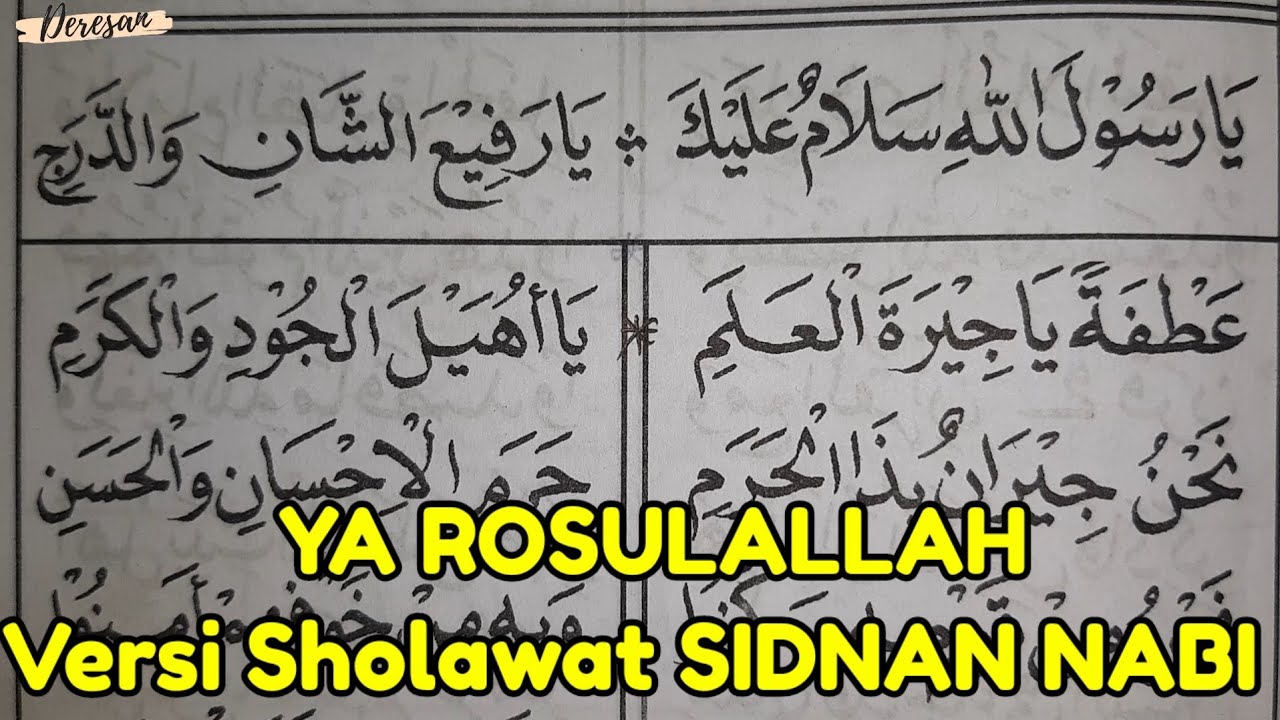 Deresan
يَارَسُوْلَ اللّٰهِ سَلَامٌ عَلَيْكَ ؞ يَارَفِيْعَ الشَّانِ وَالدَّرَجِ
عَطْفَةً يَاجِيْرَةَ الْعَلَمِ * يَاأُهَيْلَ الْجُوْدِ وَالْكَرَمِ
نَحْنُ جِيْرَانٌ بِذَا الْحَرَمِ حَرَمَ الْاِحْسَانِ وَالْحَسَنِ
YA ROSULALLAH
Versi Sholawat SIDNAN NABI